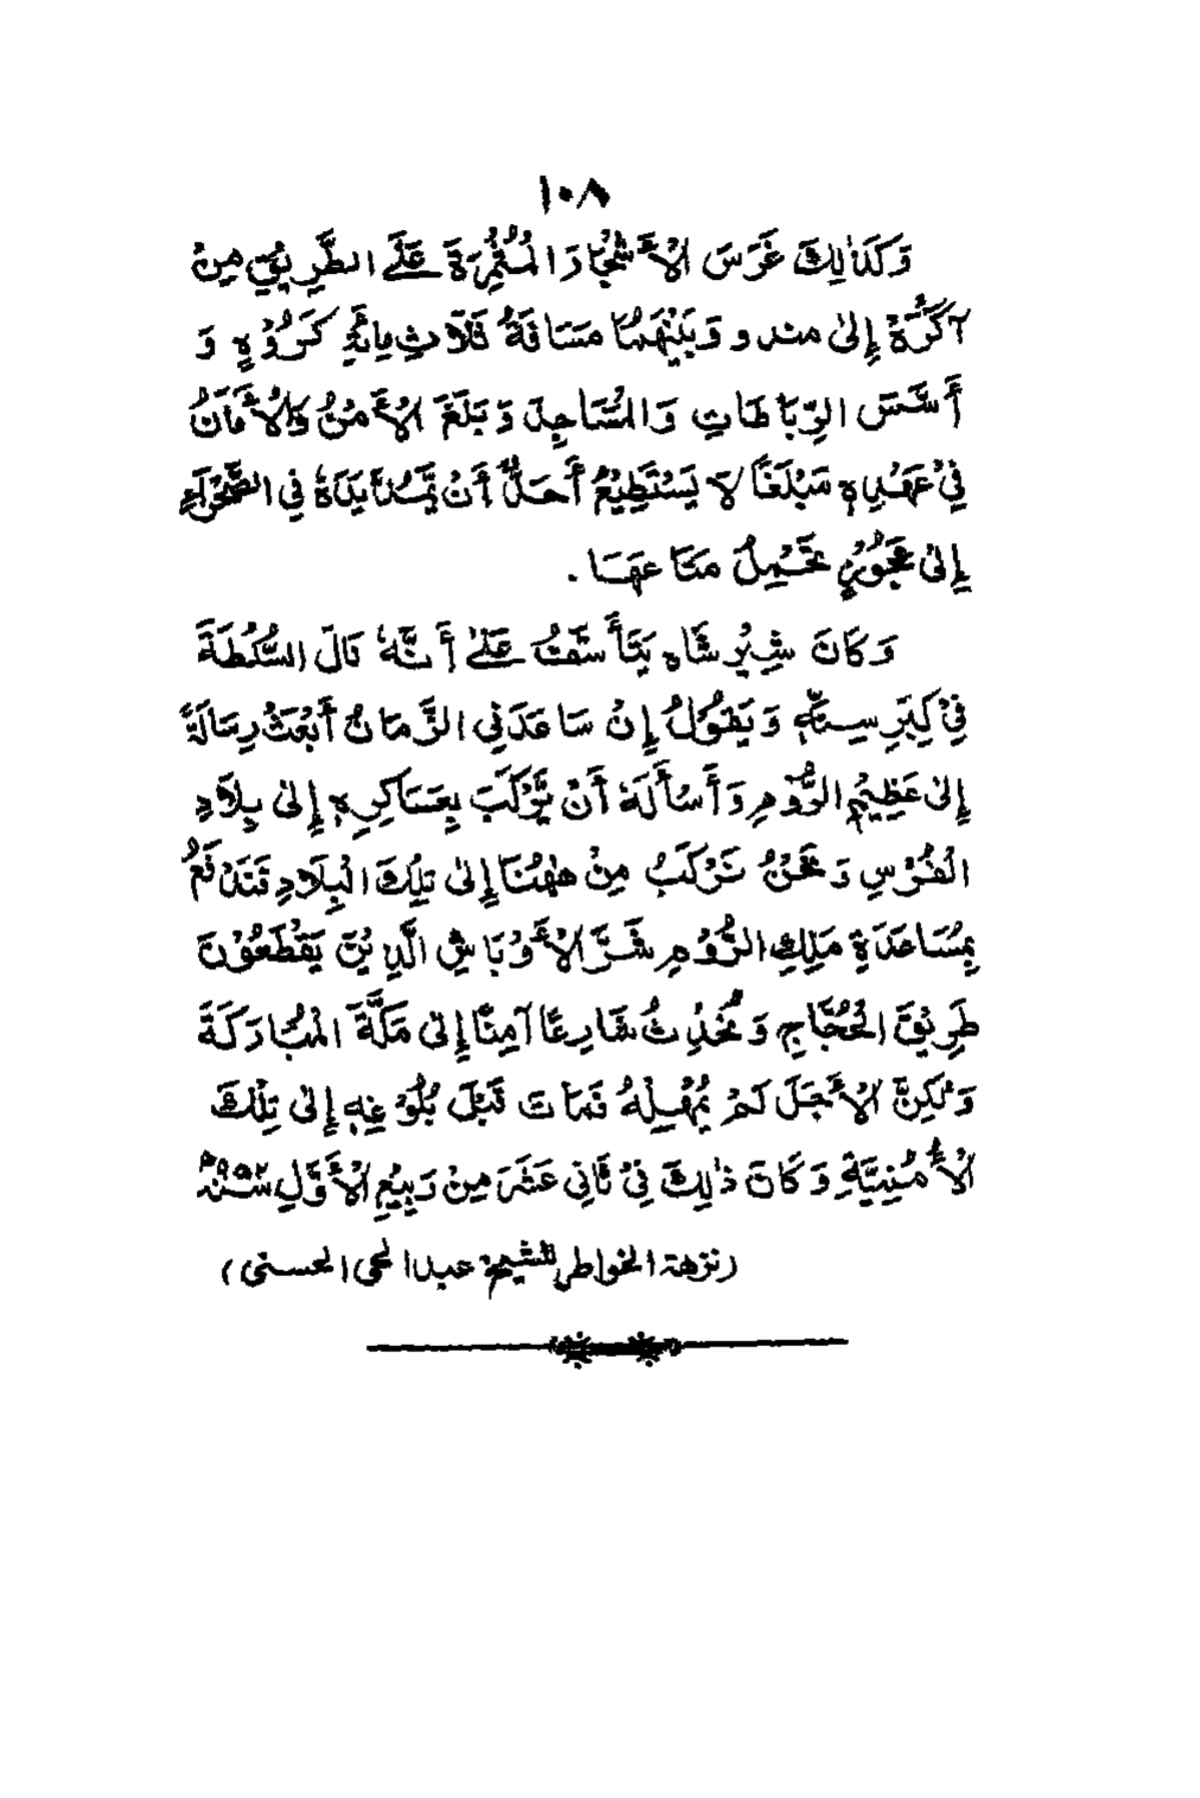 ١٠٨
وَكَذٰلِكَ غَرَسَ الْأَشْجَارَ الْمُثْمِرَةَ عَلَى الطَّرِيْقِ مِنْ
آكَرَةْ إِلىٰ مندو وَبَيْنَهُمَا مَسَافَةُ ثَلَاثِ مِائَةِ كَرُوْهٍ وَ
أَسَّسَ الرِّبَاطَاتِ وَالْمَسَاجِدَ وَبَلَغَ الْأَمْنُ وَالْأَمَانُ
فِيْ عَهْدِهٖ مَبْلَغًا لَا يَسْتَطِيْعُ أَحَدٌ أَنْ يَّمُدَّ يَدَهٗ فِي الصَّحْرَاءِ
إِلىٰ عَجُوْزٍ تَحْمِلُ مَتَاعَهَا .
وَكَانَ شِيْرشَاه يَتَأَسَّفُ عَلىٰ أَنَّهٗ نَالَ السُّلْطَةَ
فِيْ كِبَرِ سِنِّهٖ وَيَقُوْلُ إِنْ سَاعَدَنِي الزَّمَانُ أَبْعَثُ رِسَالَةً
إِلىٰ عَظِيْمِ الرُّوْمِ وَأَسْأَلَهٗ أَنْ يَّرْكَبَ بِعَسَاكِرِهٖ إِلىٰ بِلَادِ
الْفُرْسِ وَنَحْنُ نَرْكَبُ مِنْ هٰهُنَا إِلىٰ تِلْكَ الْبِلَادِ فَنَدْفَعُ
بِمُسَاعَدَةِ مَلِكِ الرُّوْمِ شَرَّ الْأَوْبَاشِ الَّذِيْنَ يَقْطَعُوْنَ
طَرِيْقَ الْحُجَّاجِ وَنُحْدِثُ شَارِعًا آمِنًا إِلىٰ مَكَّةَ الْمُبَارَكَةَ
وَلٰكِنَّ الْأَجَلَ لَمْ يُمْهِلْهُ فَمَاتَ قَبْلَ بُلُوْغِهٖ إِلىٰ تِلْكَ
الْأُمْنِيَّةِ وَكَانَ ذٰلِكَ فِيْ ثَانِي عَشَرَ مِنْ رَبِيْعِ الْأَوَّلِ سَنَةَ ٩٥٢ھ
(نزهة الخواطر للشيخ عبد الحي الحسني)